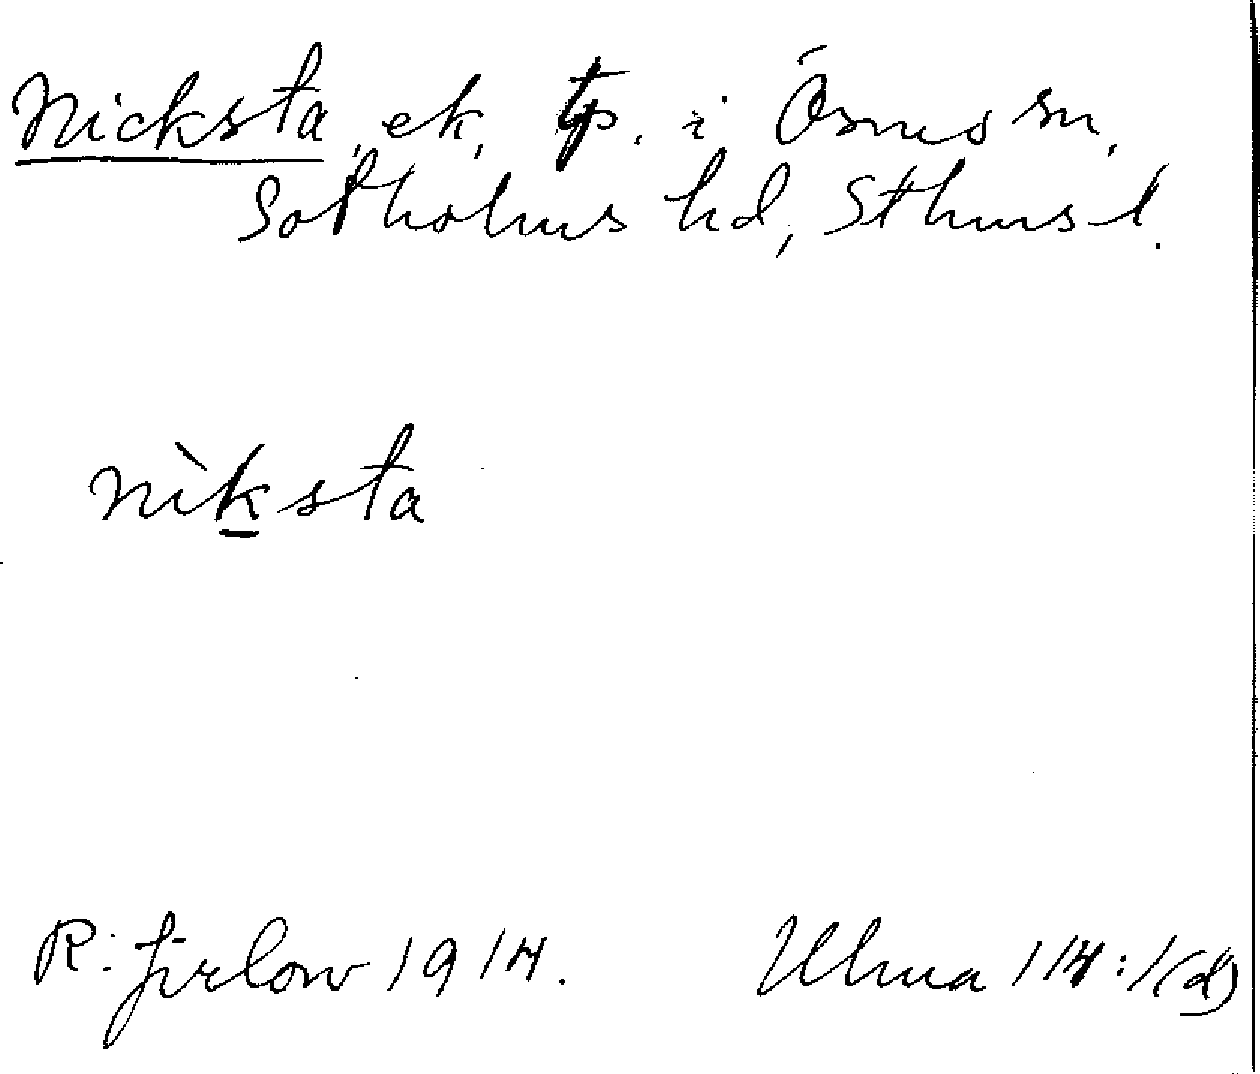 Nicksta, ek, tp. i Ösmo sn,
Sotholms hd, Sthms l.
nìksta
R. Jirlow 1914.
Ulma 114:1(d)